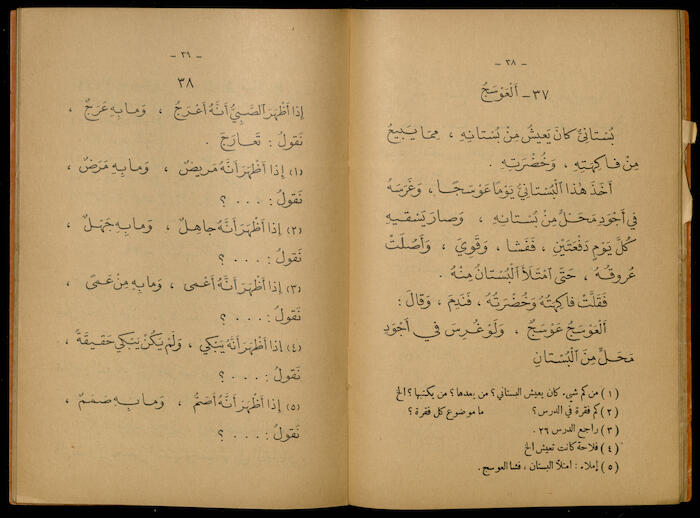 - ٣٨ -
٣٧ - اَلْعَوْسَجُ
بُسْتَانِيٌّ كَانَ يَعِيشُ مِنْ بُسْتَانِهِ ، مِمَّا يَبِيعُ
مِنْ فَاكِهَتِهِ ، وَخُضْرَتِهِ .
أَخَذَ هٰذَا الْبُسْتَانِيُّ يَوْمًا عَوْسَجًا ، وَغَرَسَهُ
فِي أَجْوَدِ مَحَلٍّ مِنْ بُسْتَانِهِ ، وَصَارَ يَسْقِيهِ
كُلَّ يَوْمٍ دَفْعَتَيْنِ ، فَفَشَا ، وَقَوِيَ ، وَأَصَّلَتْ
عُرُوقُهُ ، حَتَّى امْتَلَأَ الْبُسْتَانُ مِنْهُ .
فَقَلَّتْ فَاكِهَتُهُ وَخُضْرَتُهُ ، فَنَدِمَ ، وَقَالَ :
اَلْعَوْسَجُ عَوْسَجٌ ، وَلَوْ غُرِسَ فِي أَجْوَدِ
مَحَلٍّ مِنَ الْبُسْتَانِ
(١) من كم شيء كان يعيش البستاني ؟ من بعدها ؟ من يكتبها ؟ الخ
(٢) كم فقرة في الدرس ؟ ما موضوع كل فقرة ؟
(٣) راجع الدرس ٢٦ .
(٤) فلاحة كانت تعيش الخ
(٥) إملاء : امتلأ البستان ، فشا العوسج .
- ٣٩ -
٣٨
إِذَا أَظْهَرَ الصَّبِيُّ أَنَّهُ أَعْرَجُ ، وَمَا بِهِ عَرَجٌ ،
نَقُولُ : تَعَارَجَ .
(١) إِذَا أَظْهَرَ أَنَّهُ مَرِيضٌ ، وَمَا بِهِ مَرَضٌ ،
نَقُولُ : . . . ؟
(٢) إِذَا أَظْهَرَ أَنَّهُ جَاهِلٌ ، وَمَا بِهِ جَهْلٌ ،
نَقُولُ : . . . ؟
(٣) إِذَا أَظْهَرَ أَنَّهُ أَعْمَى ، وَمَا بِهِ مِنْ عَمًى ،
نَقُولُ : . . . ؟
(٤) إِذَا أَظْهَرَ أَنَّهُ يَبْكِي ، وَلَمْ يَكُنْ يَبْكِي حَقِيقَةً ،
نَقُولُ : . . . ؟
(٥) إِذَا أَظْهَرَ أَنَّهُ أَصَمُّ ، وَمَا بِهِ صَمَمٌ ،
نَقُولُ : . . . ؟